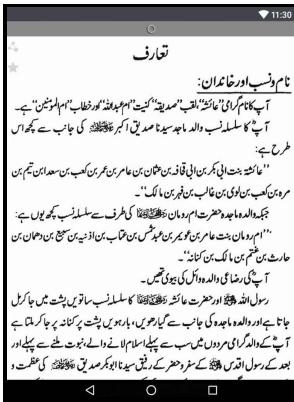 11:30
تعارف
نام ونسب اور خاندان:
آپ کا نام گرامی ”عائشہ“، لقب ”صدیقہ“ کنیت ”ام عبد اللہ“ اور خطاب ”ام المؤمنین“ ہے۔
آپؓ کا سلسلہ نسب والد ماجد سیدنا صدیق اکبر کی جانب سے کچھ اس
طرح ہے:
”عائشہ بنت ابی بکر بن ابی قحافہ بن عثمان بن عامر بن عمر بن کعب بن سعد ابن تیم بن
مرہ بن کعب بن لوی بن غالب بن فہر بن مالک“۔
جبکہ والدہ ماجدہ حضرت ام رومان کی طرف سے سلسلہ نسب کچھ یوں ہے:
”ام رومان بنت عامر بن عویمر بن عبد شمس بن عتاب بن اذنیہ بن سبیع بن دھمان بن
حارث بن غنم بن مالک بن کنانہ“۔
آپؓ کی رضاعی والدہ وائل کی بیوی تھیں۔
رسول اللہ ﷺ اور حضرت عائشہ کا سلسلہ نسب ساتویں پشت میں جا کر مل
جاتا ہے اور والدہ ماجدہ کی جانب سے گیارھویں، بارہویں پشت پر کنانہ پر جا کر ملتا ہے
آپؓ کے والد گرامی مردوں میں سب سے پہلے اسلام لانے والے، نبوت ملنے سے پہلے اور
بعد کے رسول اقدس ﷺ کے سفر و حضر کے رفیق سیدنا ابوبکر صدیق کی عظمت و